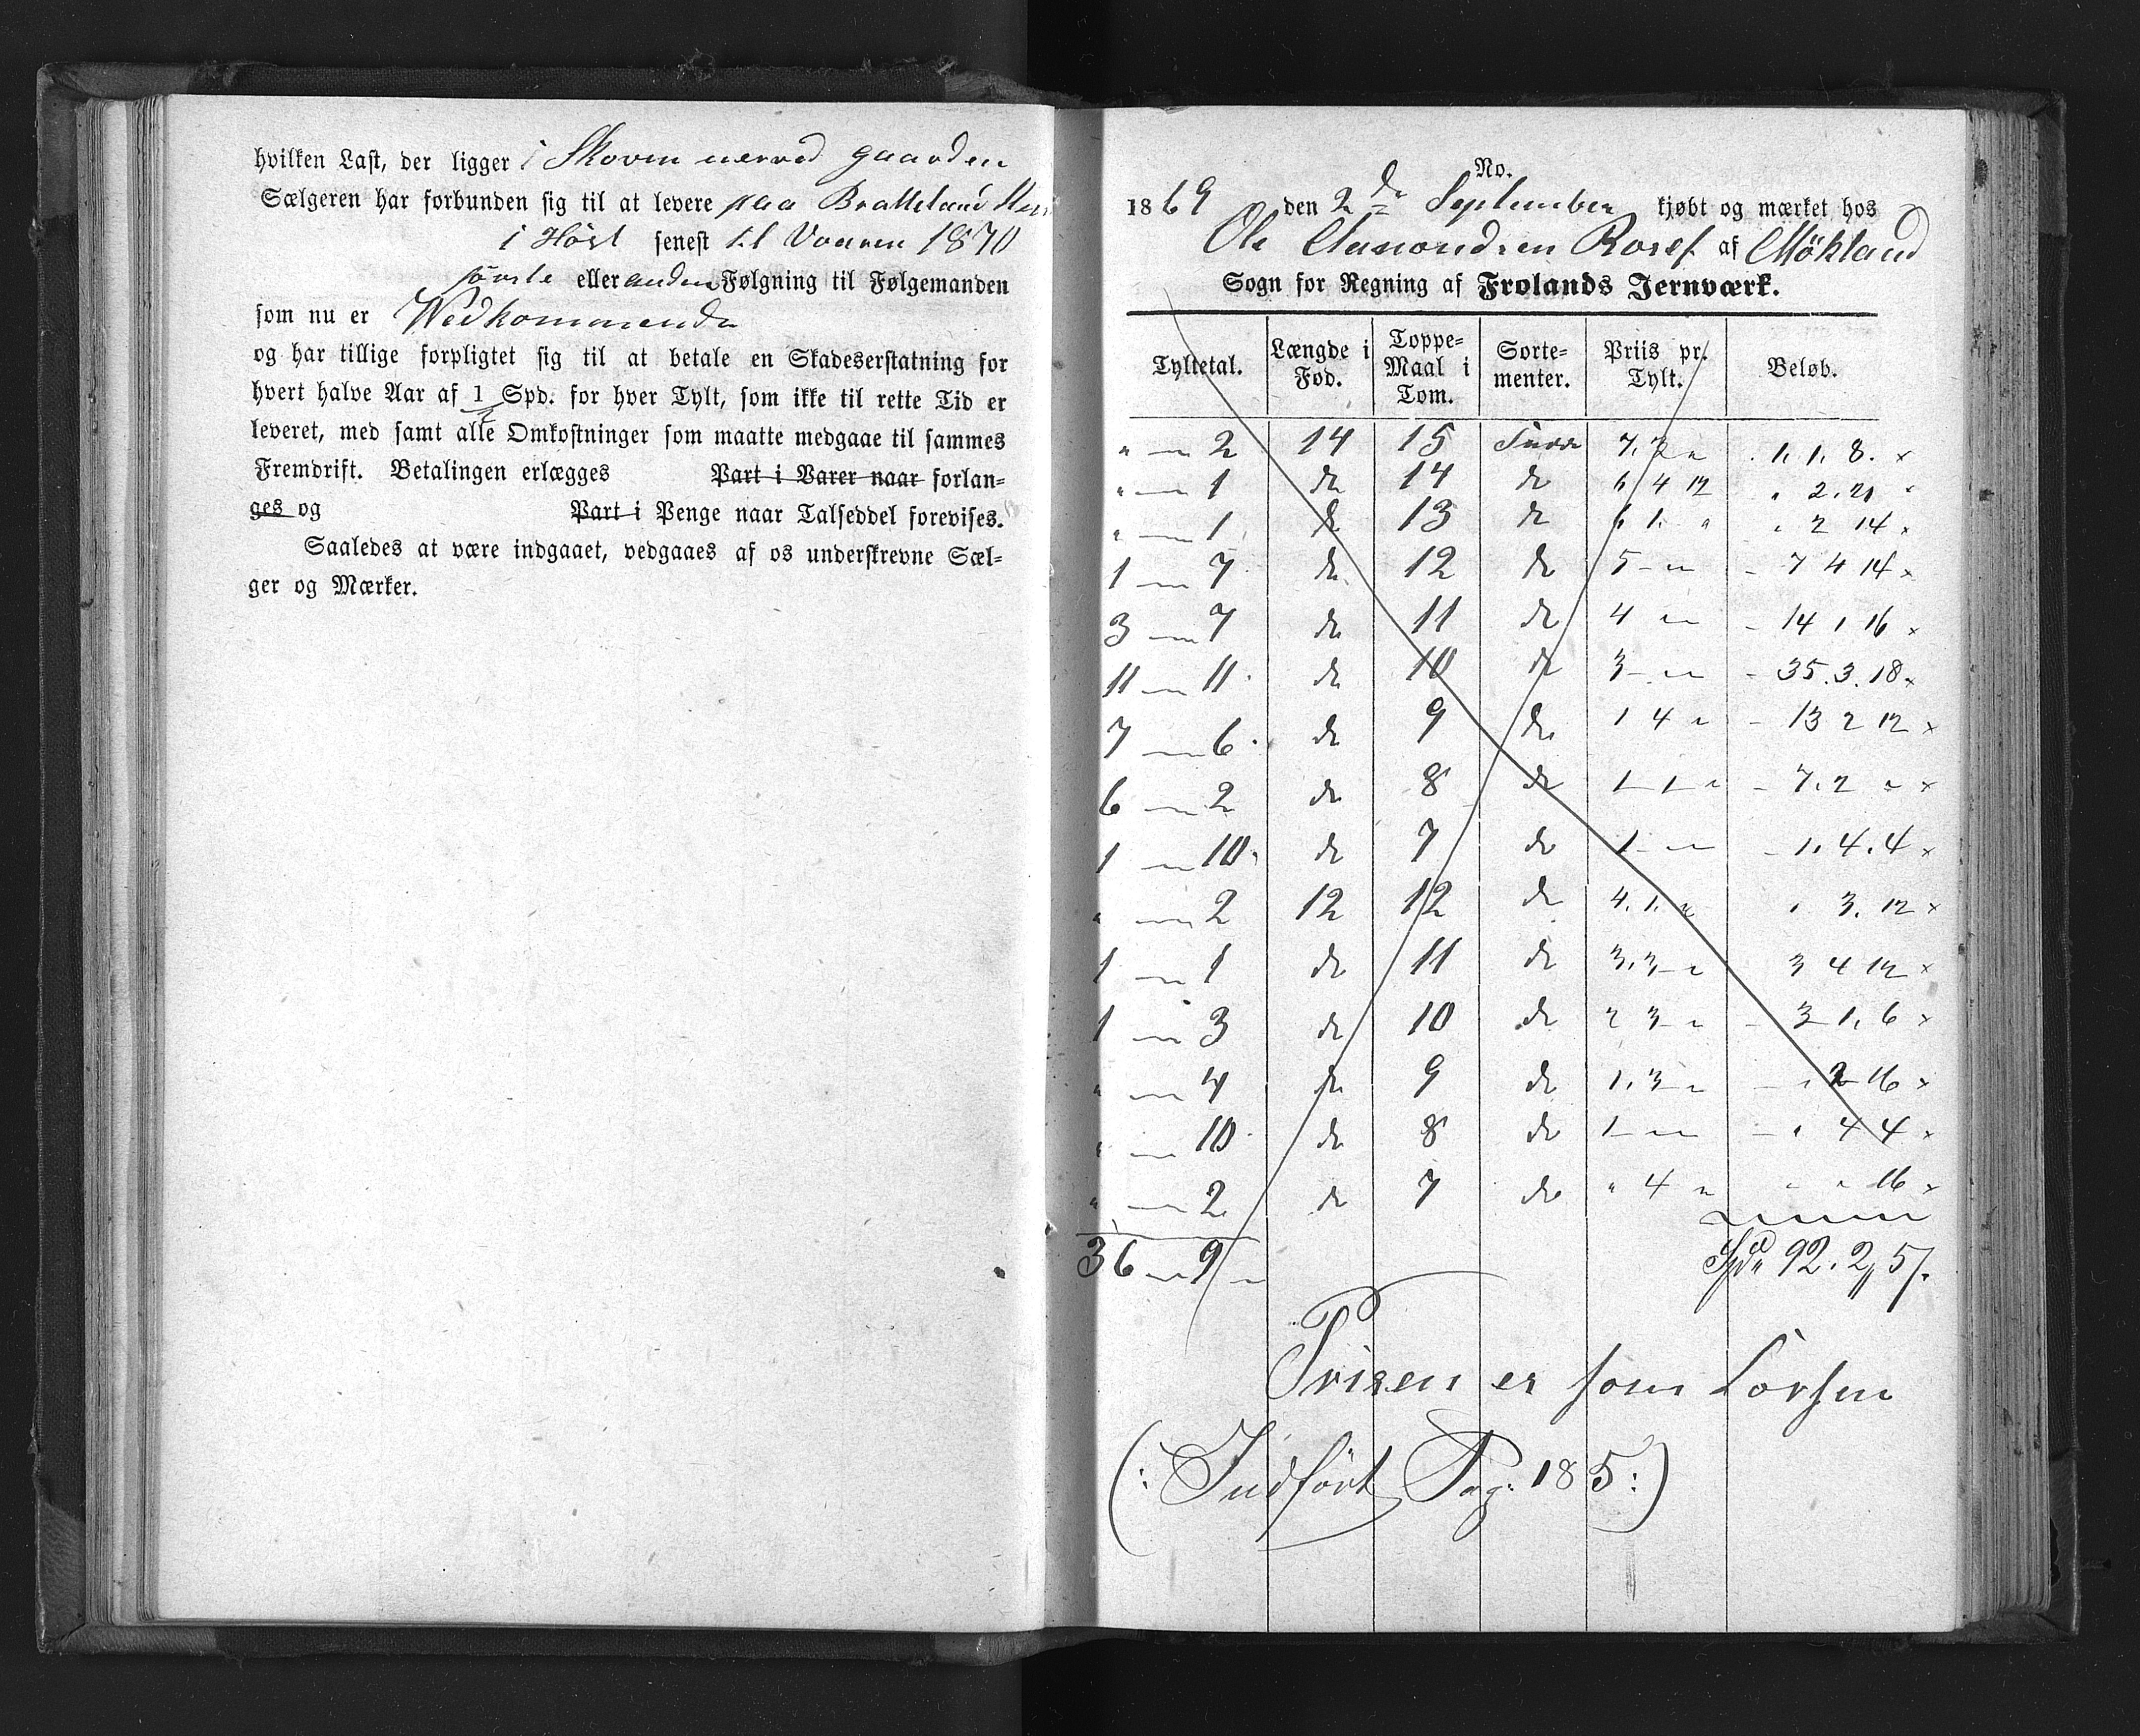 hvilken Last, der ligger i Skoven nerved gaarden
Sælgeren har forbunden sig til at levere paa Bratteland
i Höst senest til Vaaren 1870
förste eller anden Følgning til Følgemanden
som nu er Vedkommende
og har tillige forpligtet sig til at betale en Skadeserstatning for
hvert halve Aar af 1/2 Spd. for hver Tylt, som ikke til rette Tid er
leveret, med samt alle Omkostninger som maatte medgaae til sammes
Fremdrift. Betalingen erlægges Part i Varer naar forlan-
ges og Part i Penge naar Talseddel forevises.
Saaledes at være indgaaet, vedgaaes af os underskrevne Sæl-
ger og Mærker.
No.
1869 den 2de September kjøbt og mærket hos
Ole Aamondsen af Mökland
Sogn for Regning af Frolands Jernværk.
Tyltetal. Længde i Fod. Toppe-Maal i Tom. Sorte-menter. Priis pr. Tylt. Beløb.
" — 2 14 15 Furu 7. 2 " 1. 1. 8. ×
" — 1 do 14 do 6 4 12 " 2. 21
" — 1 do 13 do 6 1. " " 2 14 ×
1 — 7 do 12 do 5 - " - 7 4 14 ×
3 — 7 do 11 do 4 " - 14 1 16 ×
11 — 11 do 10 do 3 - " - 35. 3. 18 ×
7 — 6 do 9 do 1 4 " - 13 2 12 ×
6 — 2 do 8 do 1 - 1 " - 7. 2 " ×
1 — 10 do 7 do 1 - " - 1. 4. 4 ×
" — 2 12 12 do 4. 1. " " 3. 12 ×
1 — 1 do 11 do 3. 3 - " 3 4 12 ×
1 — 3 do 10 do 2 3 - " - 3 1. 6 ×
" — 4 do 9 do 1. 3 " - " 2 16 ×
" — 10 do 8 do 1 - " - " 4 4 ×
" — 2 do 7 do " 4 " " " 16 ×
36 — 9 — Spd 92. 2, 5.
Prisen er som
(: Indfört Pag: 185 :)